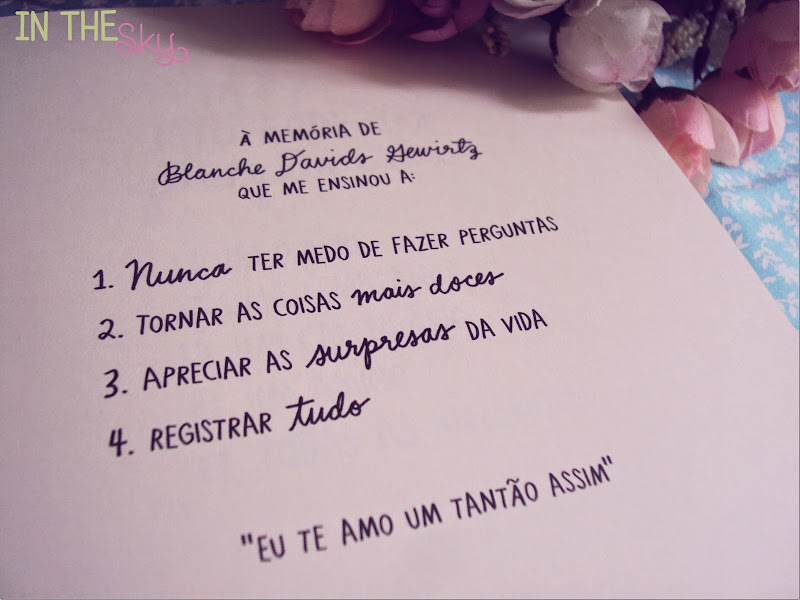 IN THE
Sky
À MEMÓRIA DE
Blanche Davids Gewirtz
QUE ME ENSINOU A:
1. Nunca TER MEDO DE FAZER PERGUNTAS
2. TORNAR AS COISAS mais doces
3. APRECIAR AS surpresas DA VIDA
4. REGISTRAR tudo
"EU TE AMO UM TANTÃO ASSIM"